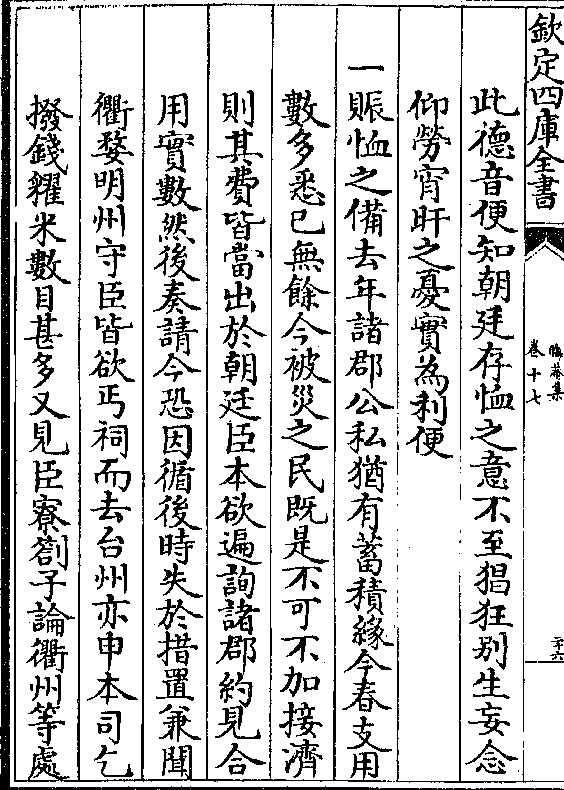 欽定四庫全書
晦菴集
卷十七
二十六
此德音便知朝廷存恤之意不至猖狂别生妄念
仰勞宵旰之憂實為利便
一賑恤之備去年諸郡公私猶有蓄積緣今春支用
數多悉已無餘今被災之民既是不可不加接濟
則其費皆當出於朝廷臣本欲遍詢諸郡約見合
用實數然後奏請今恐因循後時失於措置兼聞
衢婺明州守臣皆欲丐祠而去台州亦申本司乞
撥錢糴米數目甚多又見臣寮劄子論衢州等處